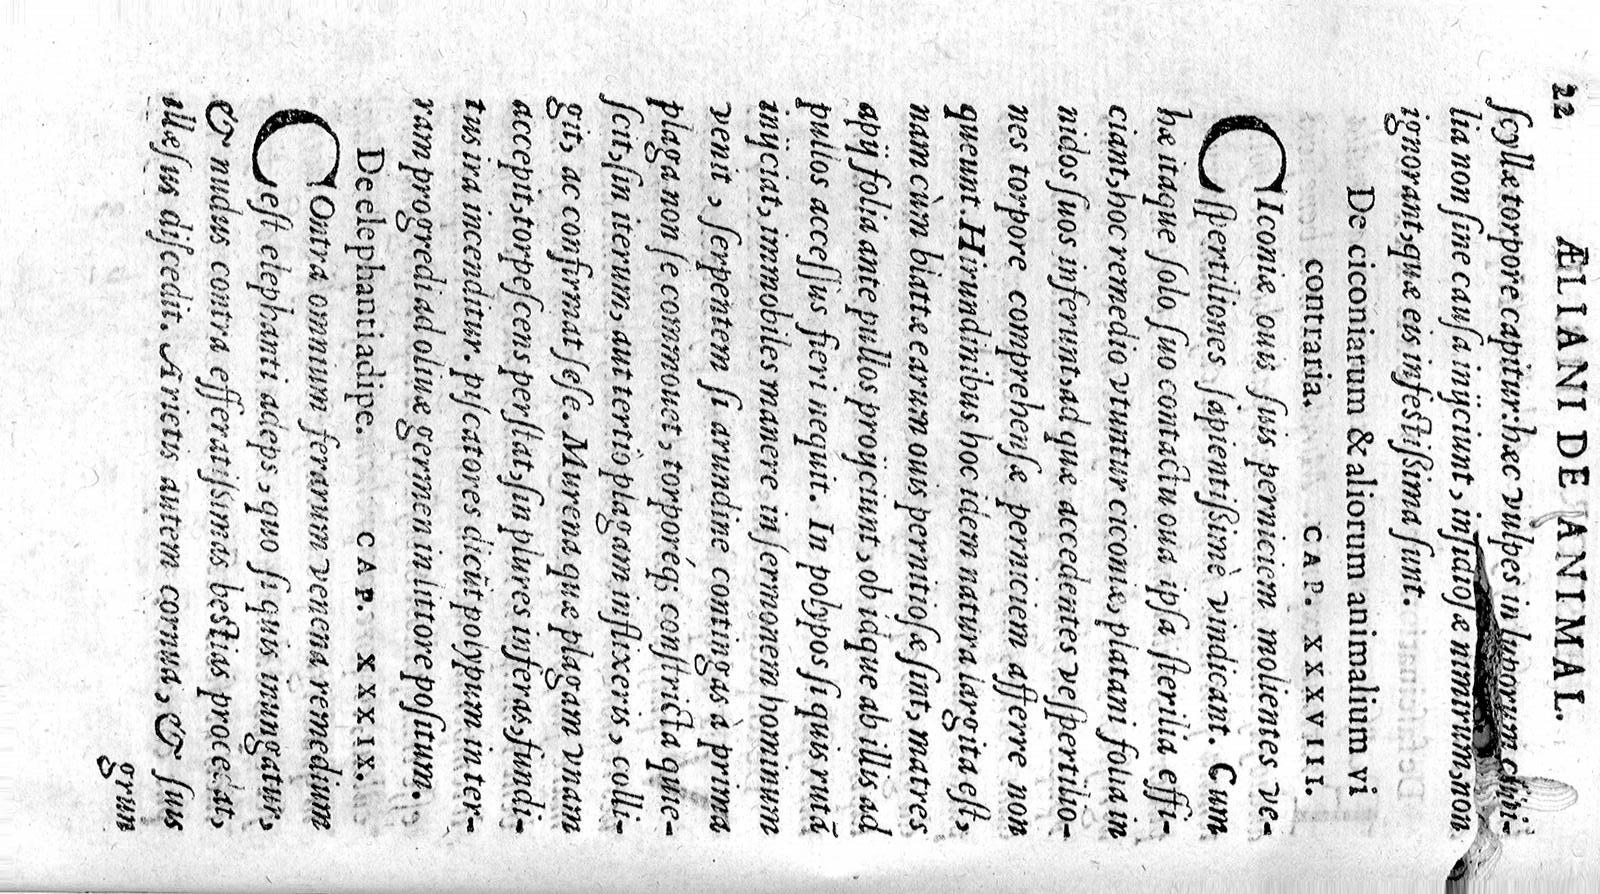 22 ÆLIANI DE ANIMAL.
ſcyllæ torpore capitur: hæc vulpes in luporum cubi-
lia non ſine cauſa inijciunt, inſidioſæ nimirum, non
ignorant, quæ eis infeſtiſsima ſunt.
De ciconiarum & aliorum animalium vi
contraria. CAP. XXXVIII.
CIconiæ ouis ſuis perniciem molientes ve-
ſpertiliones ſapientiſsimè vindicant. Cum
hæ itaque ſolo ſuo contactu oua ipſa ſterilia effi-
ciant, hoc remedio vtuntur ciconiæ, platani folia in
nidos ſuos inferunt, ad quæ accedentes veſpertilio-
nes torpore comprehenſæ perniciem afferre non
queunt. Hirundinibus hoc idem natura largita eſt,
nam cùm blattæ earum ouis pernitioſæ ſint, matres
apij folia ante pullos proijciunt, ob idque ab illis ad
pullos acceſſus fieri nequit. In polypos ſi quis rutā
inijciat, immobiles manere in ſermonem hominum
venit, ſerpentem ſi arundine contingas à prima
plaga non ſe commouet, torporéq; conſtricta quie-
ſcit, ſin iterum, aut tertiò plagam inflixeris, colli-
git, ac confirmat ſeſe. Murena quæ plagam vnam
accepit, torpeſcens perſtat, ſin plures inferas, fundi-
tus ira incenditur. piſcatores dicūt polypum in ter-
ram progredi ad oliuæ germen in littore poſitum.
De elephanti adipe. CAP. XXXIX.
COntra omnium ferarum venena remedium
eſt elephanti adeps, quo ſi quis inungatur,
& nudus contra efferatiſsimas beſtias procedat,
illæſus diſcedit. Arietis autem cornua, & ſuis
grun